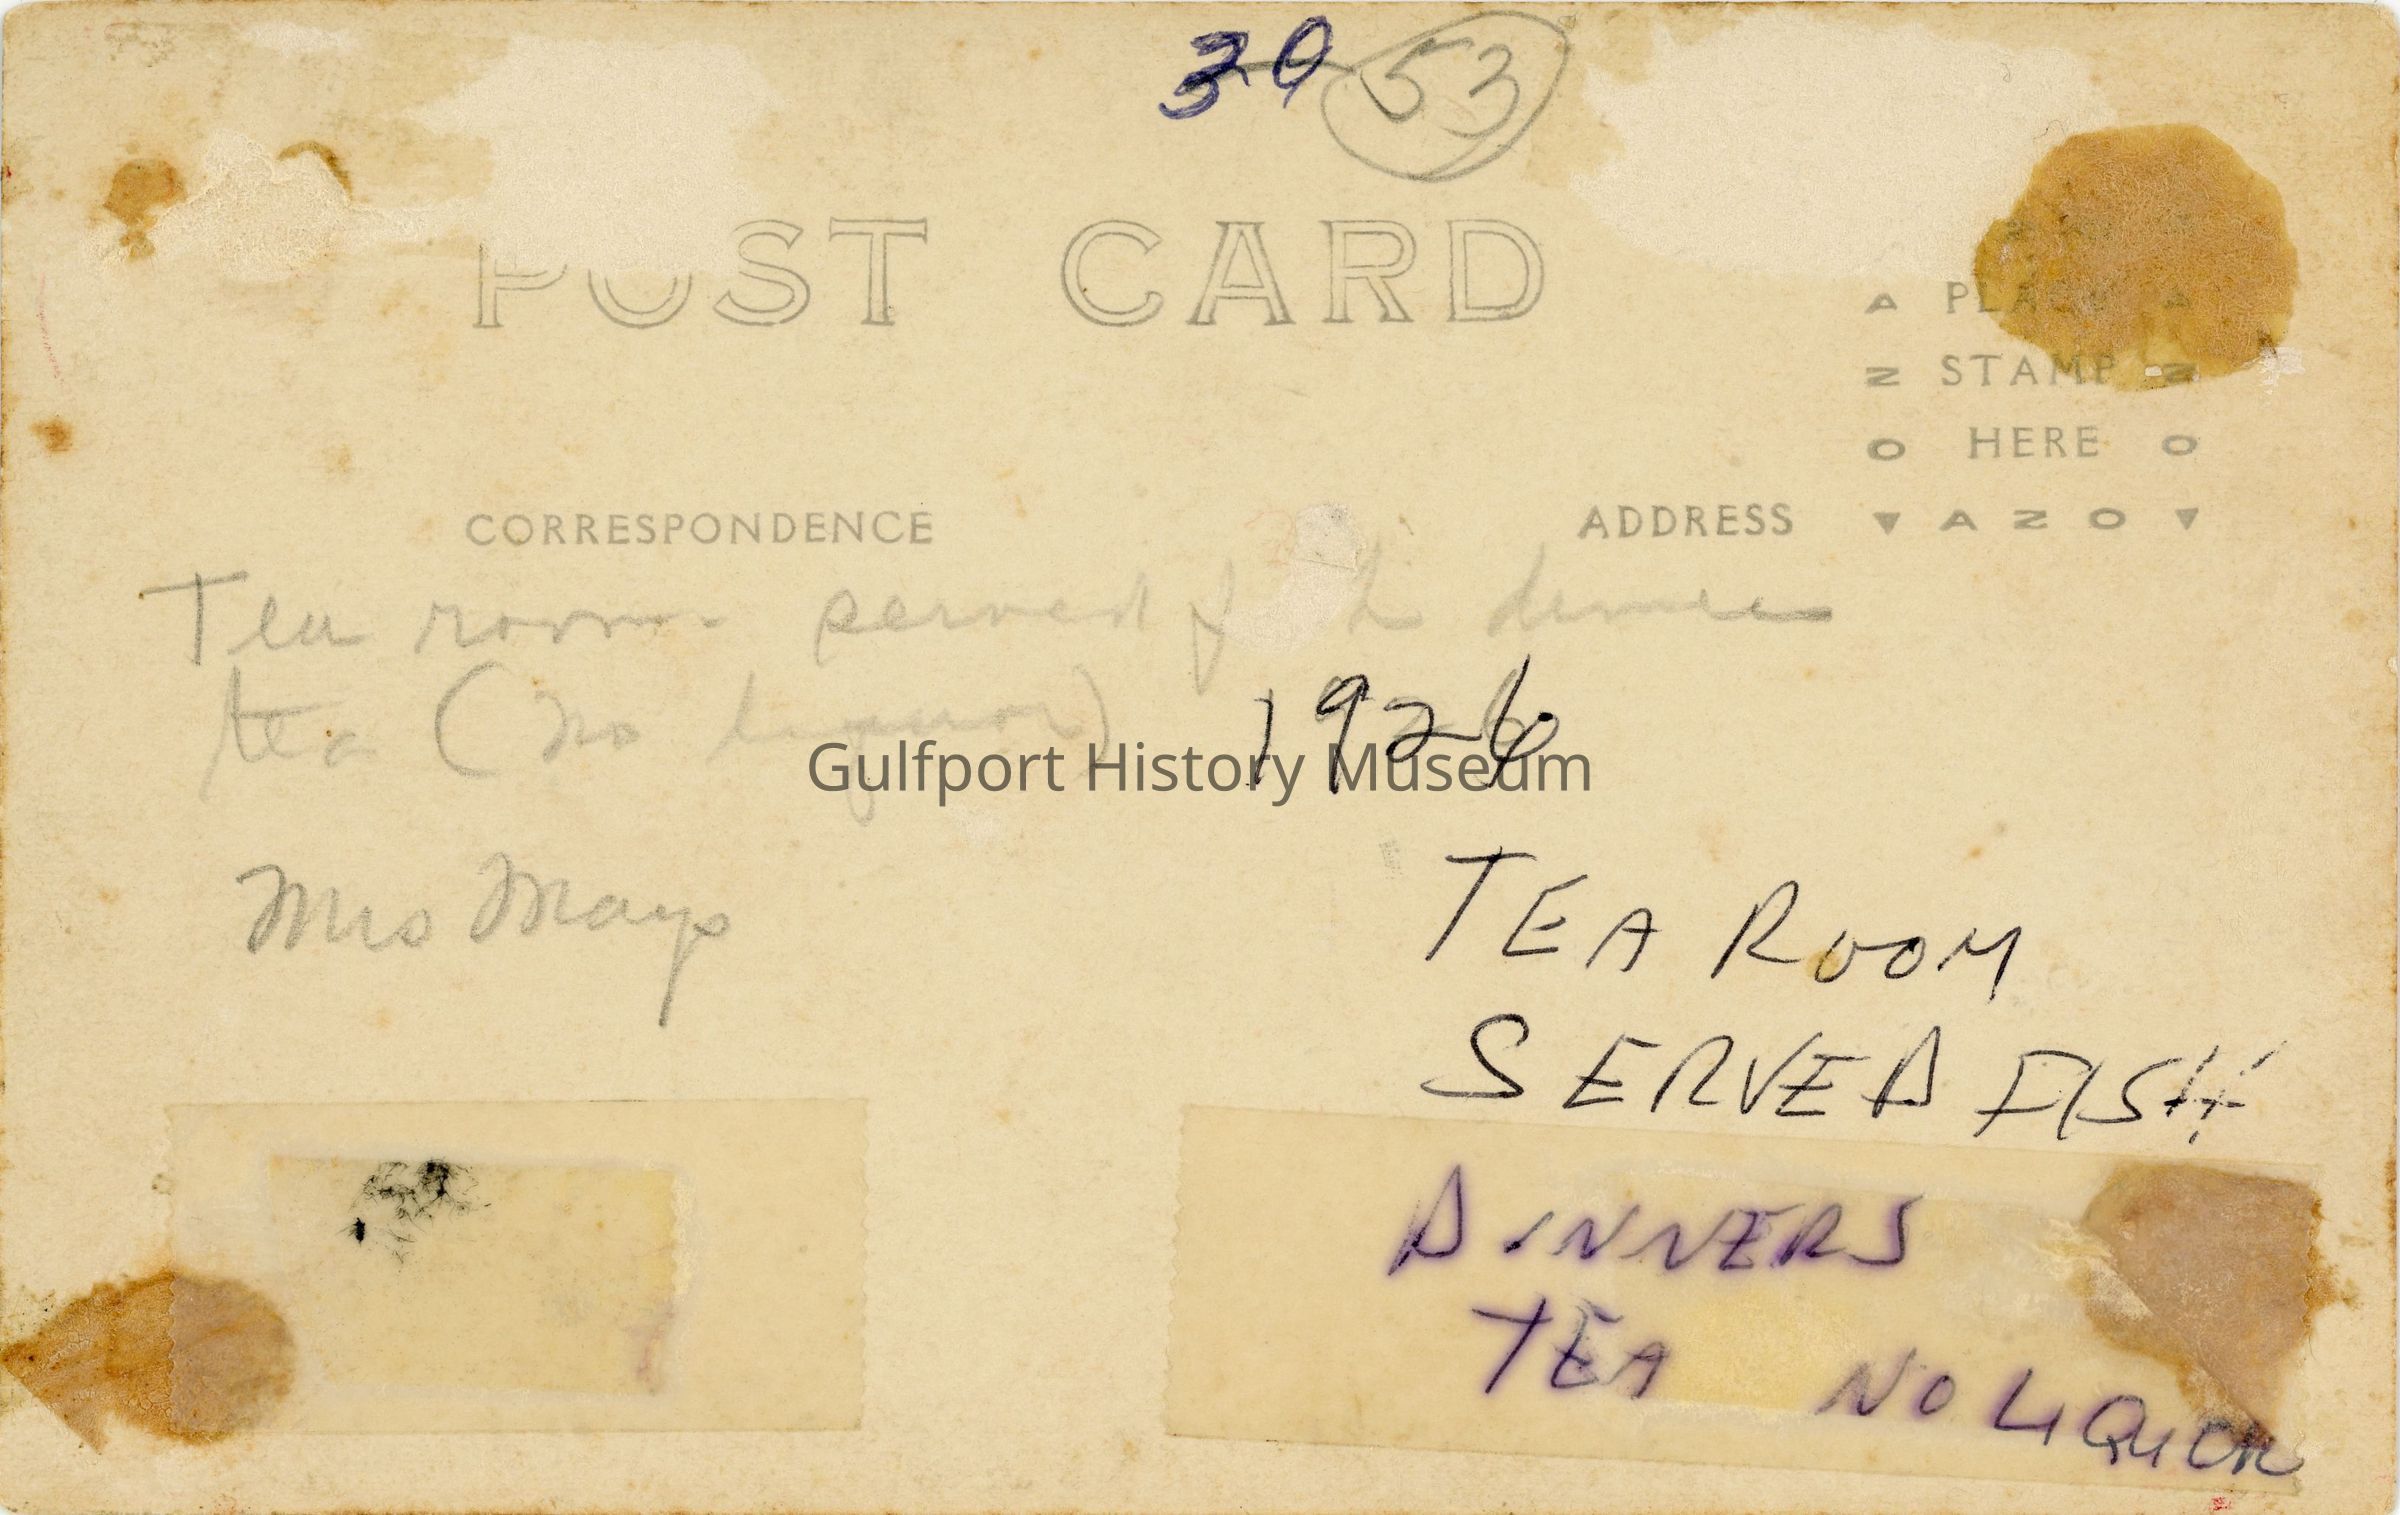 30 53
POST CARD
A PLACE A
Z STAMP Z
O HERE O
CORRESPONDENCE
ADDRESS ▼ A Z O ▼
Tea room served dinner
tea (no liquor) 1926
Gulfport History Museum
Mrs Mays
TEA ROOM
SERVED FISH
DINNERS
TEA NO LIQUOR